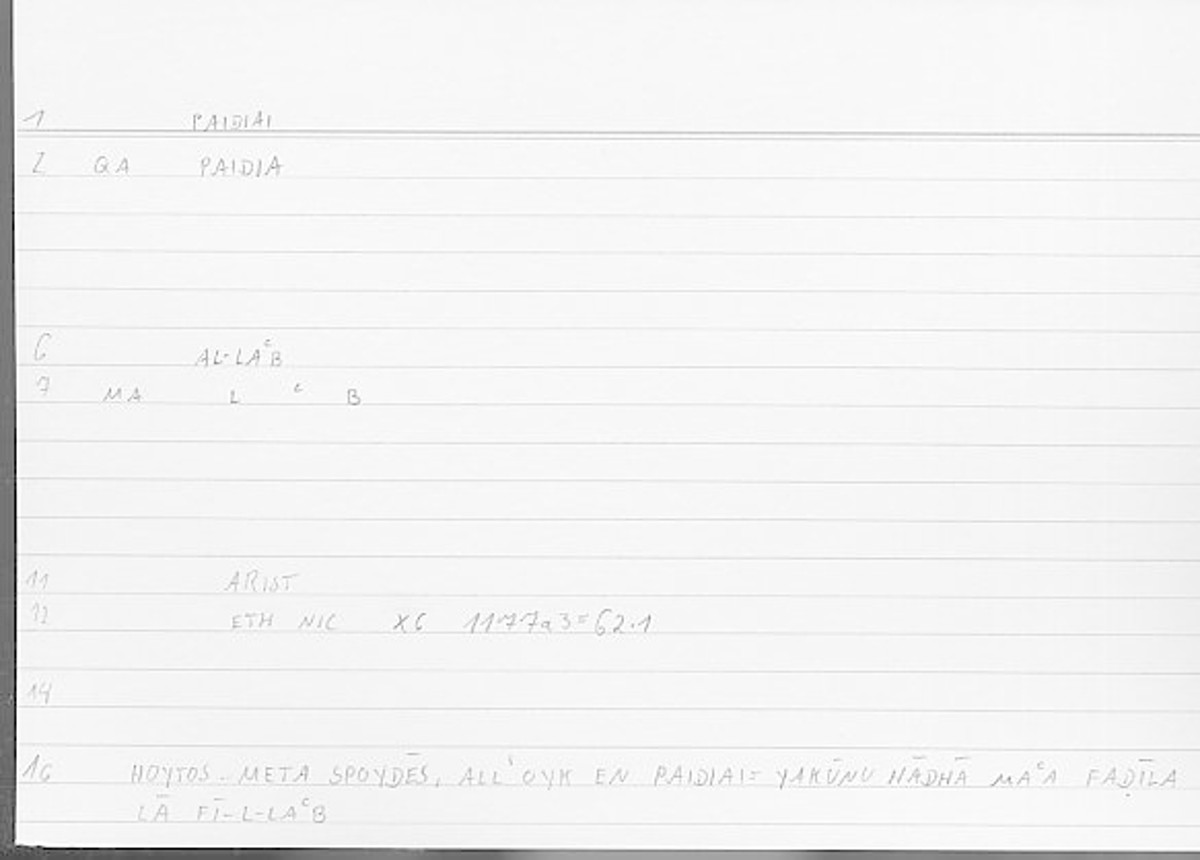 1 PAIDIAI
2 QA PAIDIA
6 AL-LAᶜB
7 MA L ᶜ B
11 ARIST
12 ETH NIC X6 1177a3=62.1
14
16 HOYTOS - META SPOYDĒS, ALL' OYK EN PAIDIAI= YAKŪNU HĀDHĀ MAᶜA FAḌĪLA
LĀ FĪ-L-LAᶜB